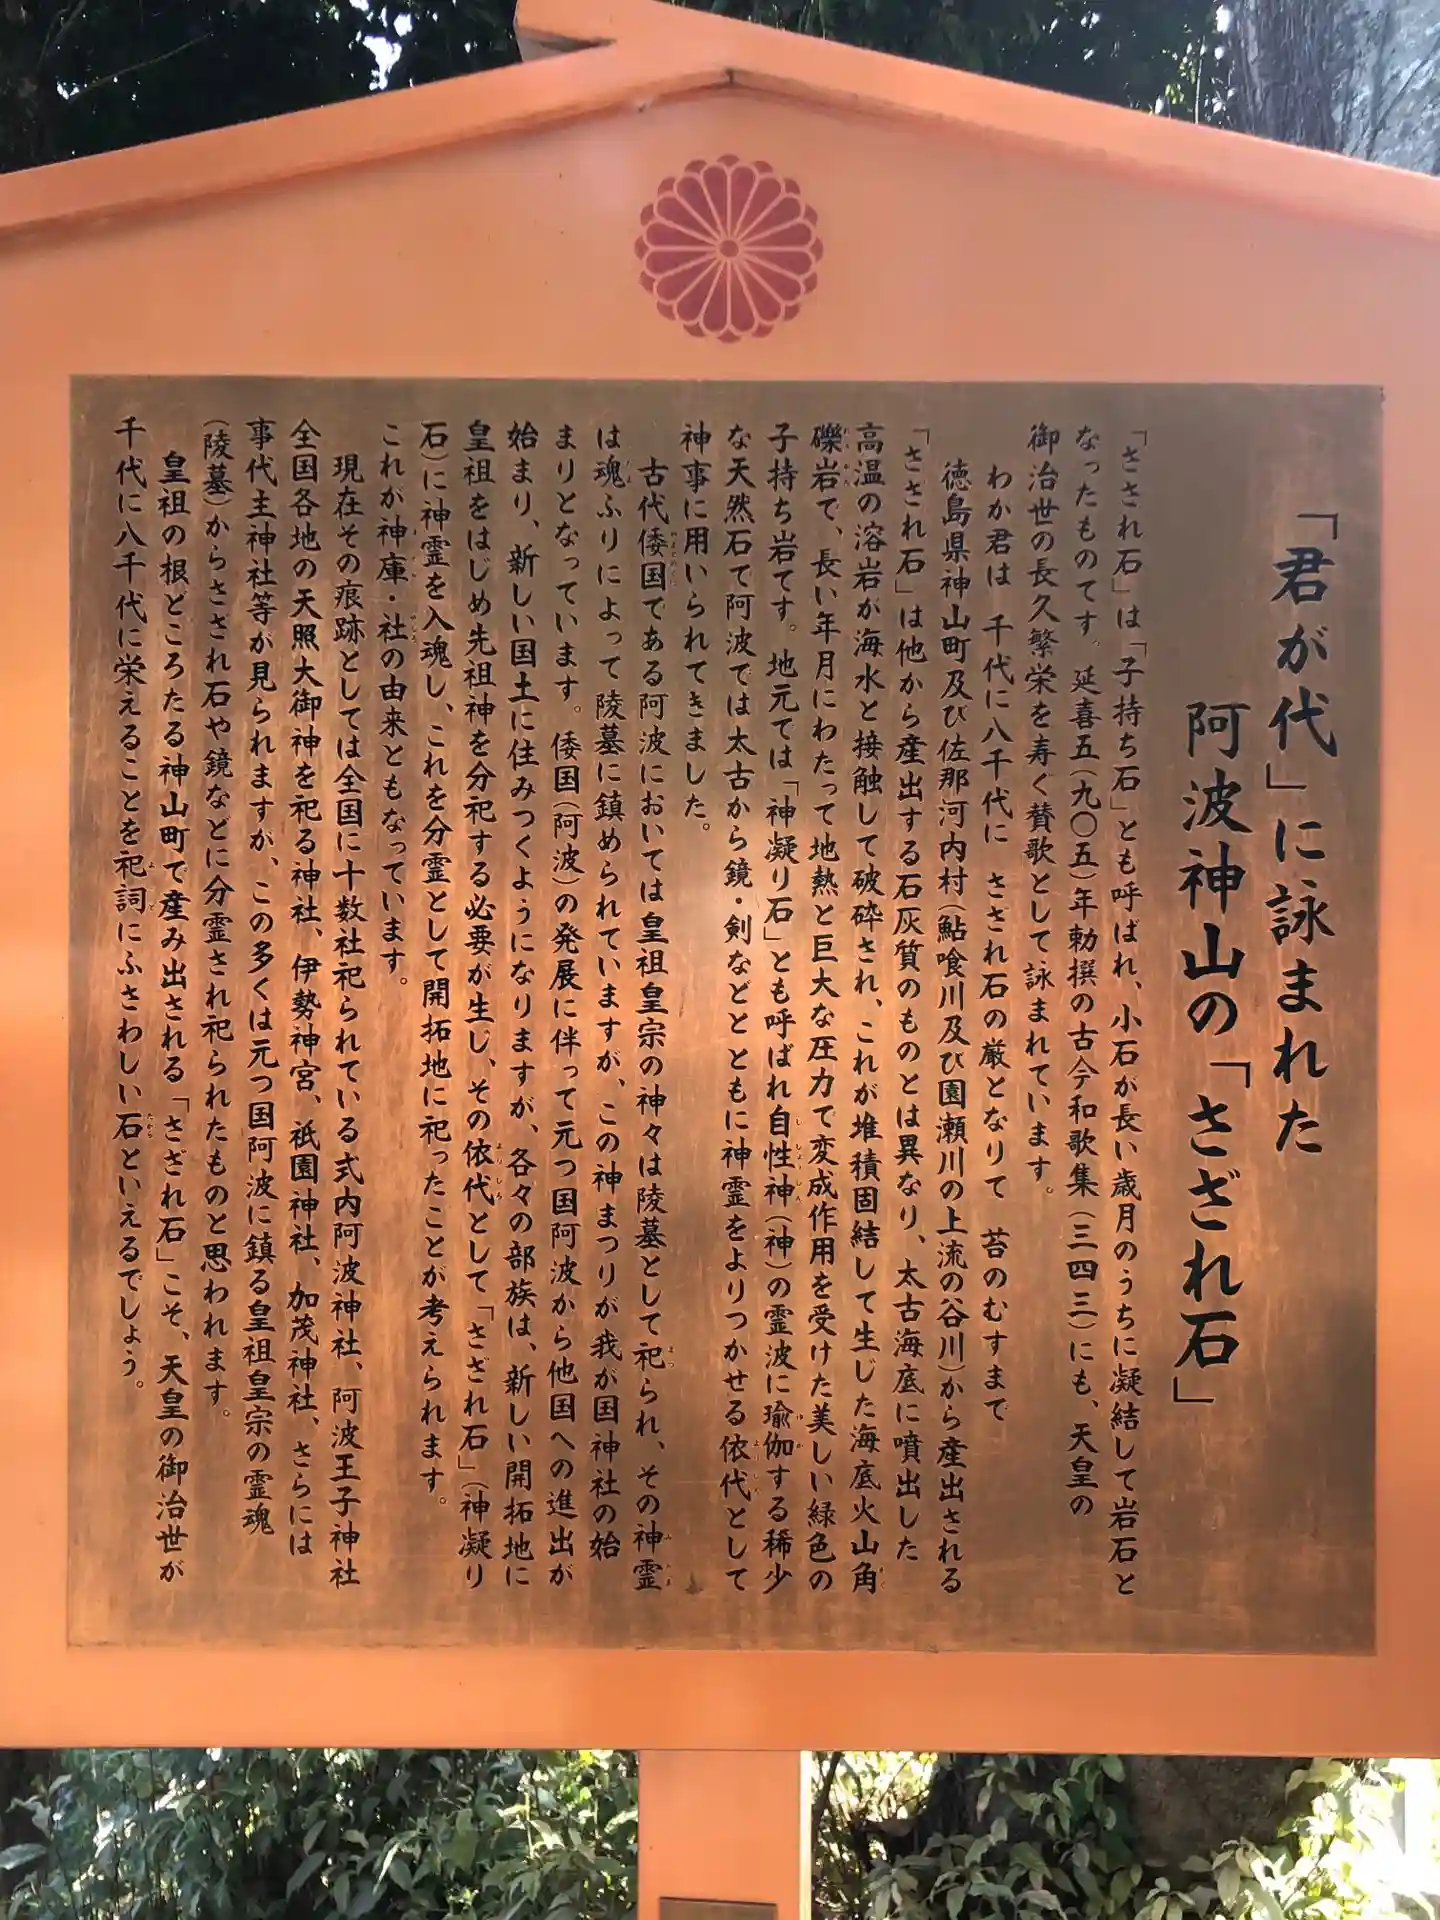 「君が代」に詠まれた
阿波神山の「さざれ石」
「さざれ石」は「子持ち石」とも呼ばれ、小石が長い歳月のうちに凝結して岩石と
なったものです。延喜五(九〇五)年勅撰の古今和歌集(三四三)にも、天皇の
御治世の長久繁栄を寿ぐ賛歌として詠まれています。
わが君は 千代に八千代に さざれ石の巌となりて 苔のむすまで
徳島県神山町及び佐那河内村(鮎喰川及び園瀬川の上流の谷川)から産出される
「さざれ石」は他から産出する石灰質のものとは異なり、太古海底に噴出した
高温の溶岩が海水と接触して破砕され、これが堆積固結して生じた海底火山角
礫岩で、長い年月にわたって地熱と巨大な圧力で変成作用を受けた美しい緑色の
子持ち岩です。地元では「神凝り石」とも呼ばれ自性神(神)の霊波に瑜伽する稀少
な天然石で阿波では太古から鏡・剣などとともに神霊をよりつかせる依代として
神事に用いられてきました。
古代倭国である阿波においては皇祖皇宗の神々は陵墓として祀られ、その神霊
は魂ふりによって陵墓に鎮められていますが、この神まつりが我が国神社の始
まりとなっています。倭国(阿波)の発展に伴って元つ国阿波から他国への進出が
始まり、新しい国土に住みつくようになりますが、各々の部族は、新しい開拓地に
皇祖をはじめ先祖神を分祀する必要が生じ、その依代として「さざれ石」(神凝り
石)に神霊を入魂し、これを分霊として開拓地に祀ったことが考えられます。
これが神庫・社の由来ともなっています。
現在その痕跡としては全国に十数社祀られている式内阿波神社、阿波王子神社
全国各地の天照大御神を祀る神社、伊勢神宮、祇園神社、加茂神社、さらには
事代主神社等が見られますが、この多くは元つ国阿波に鎮る皇祖皇宗の霊魂
(陵墓)からさざれ石や鏡などに分霊され祀られたものと思われます。
皇祖の根どころたる神山町で産み出される「さざれ石」こそ、天皇の御治世が
千代に八千代に栄えることを祀詞にふさわしい石といえるでしょう。